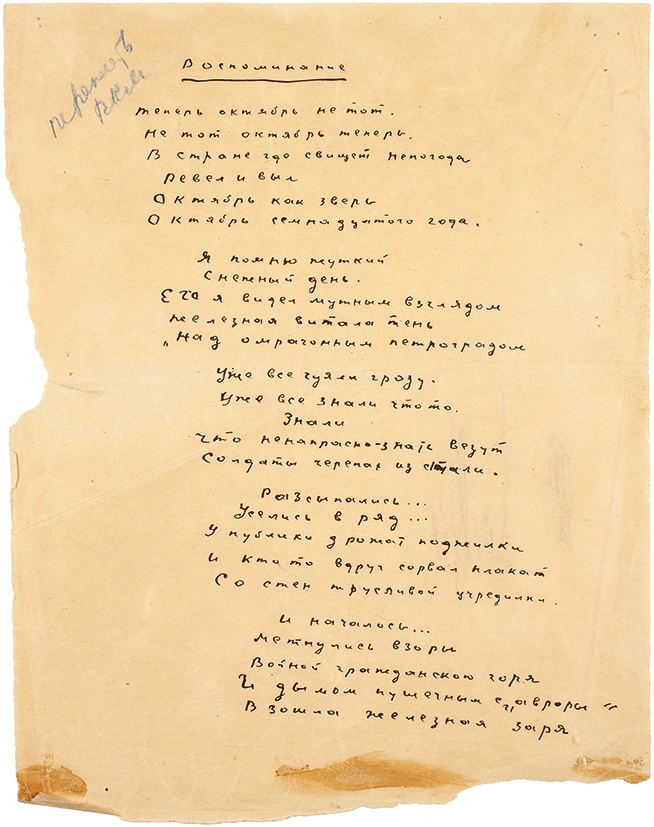 Воспоминание
теперь октябрь не тот.
Не тот октябрь теперь.
В стране где свищет непогода
Ревел и выл
Октябрь как зверь
Октябрь семнадцатого года.
Я помню жуткий
Снежный день.
Его я видел мутным взглядом
Железная витала тень
„Над омраченным петроградом
Уже все чуяли грозу.
Уже все знали что то.
Знали
Что ненапрасно знать везут
Солдаты черепах из стали.
Разсыпались...
Уселись в ряд...
У публики дрожат поджилки
И кто то вдруг сорвал плакат
Со стен трусливой учредилки.
И началось...
Метнулись взоры
Войной гражданскою горя
И дымом пушечным с „авроры“
Взошла железная заря